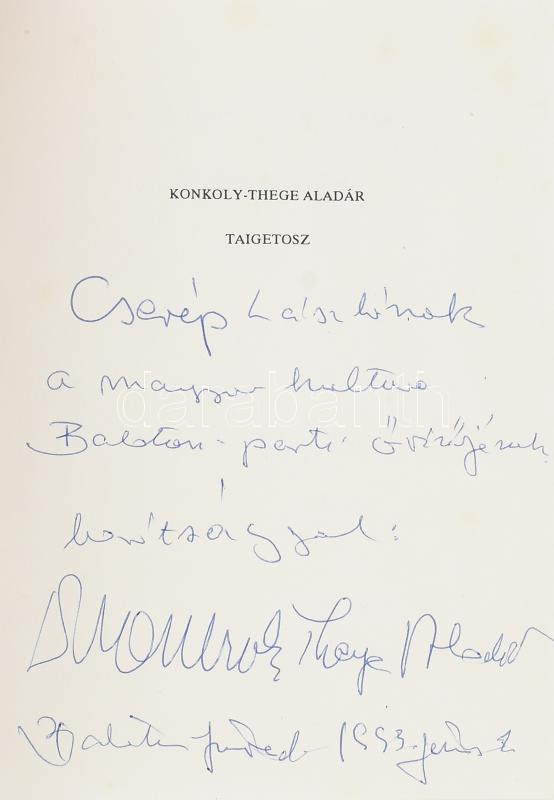 KONKOLY-THEGE ALADÁR
TAIGETOSZ
Cserép Lászlónak
a magyar kultura
Balaton-parti őrzőjének
barátsággal:
Konkoly Thege Aladár
Balatonfüred 1993.
darabanth